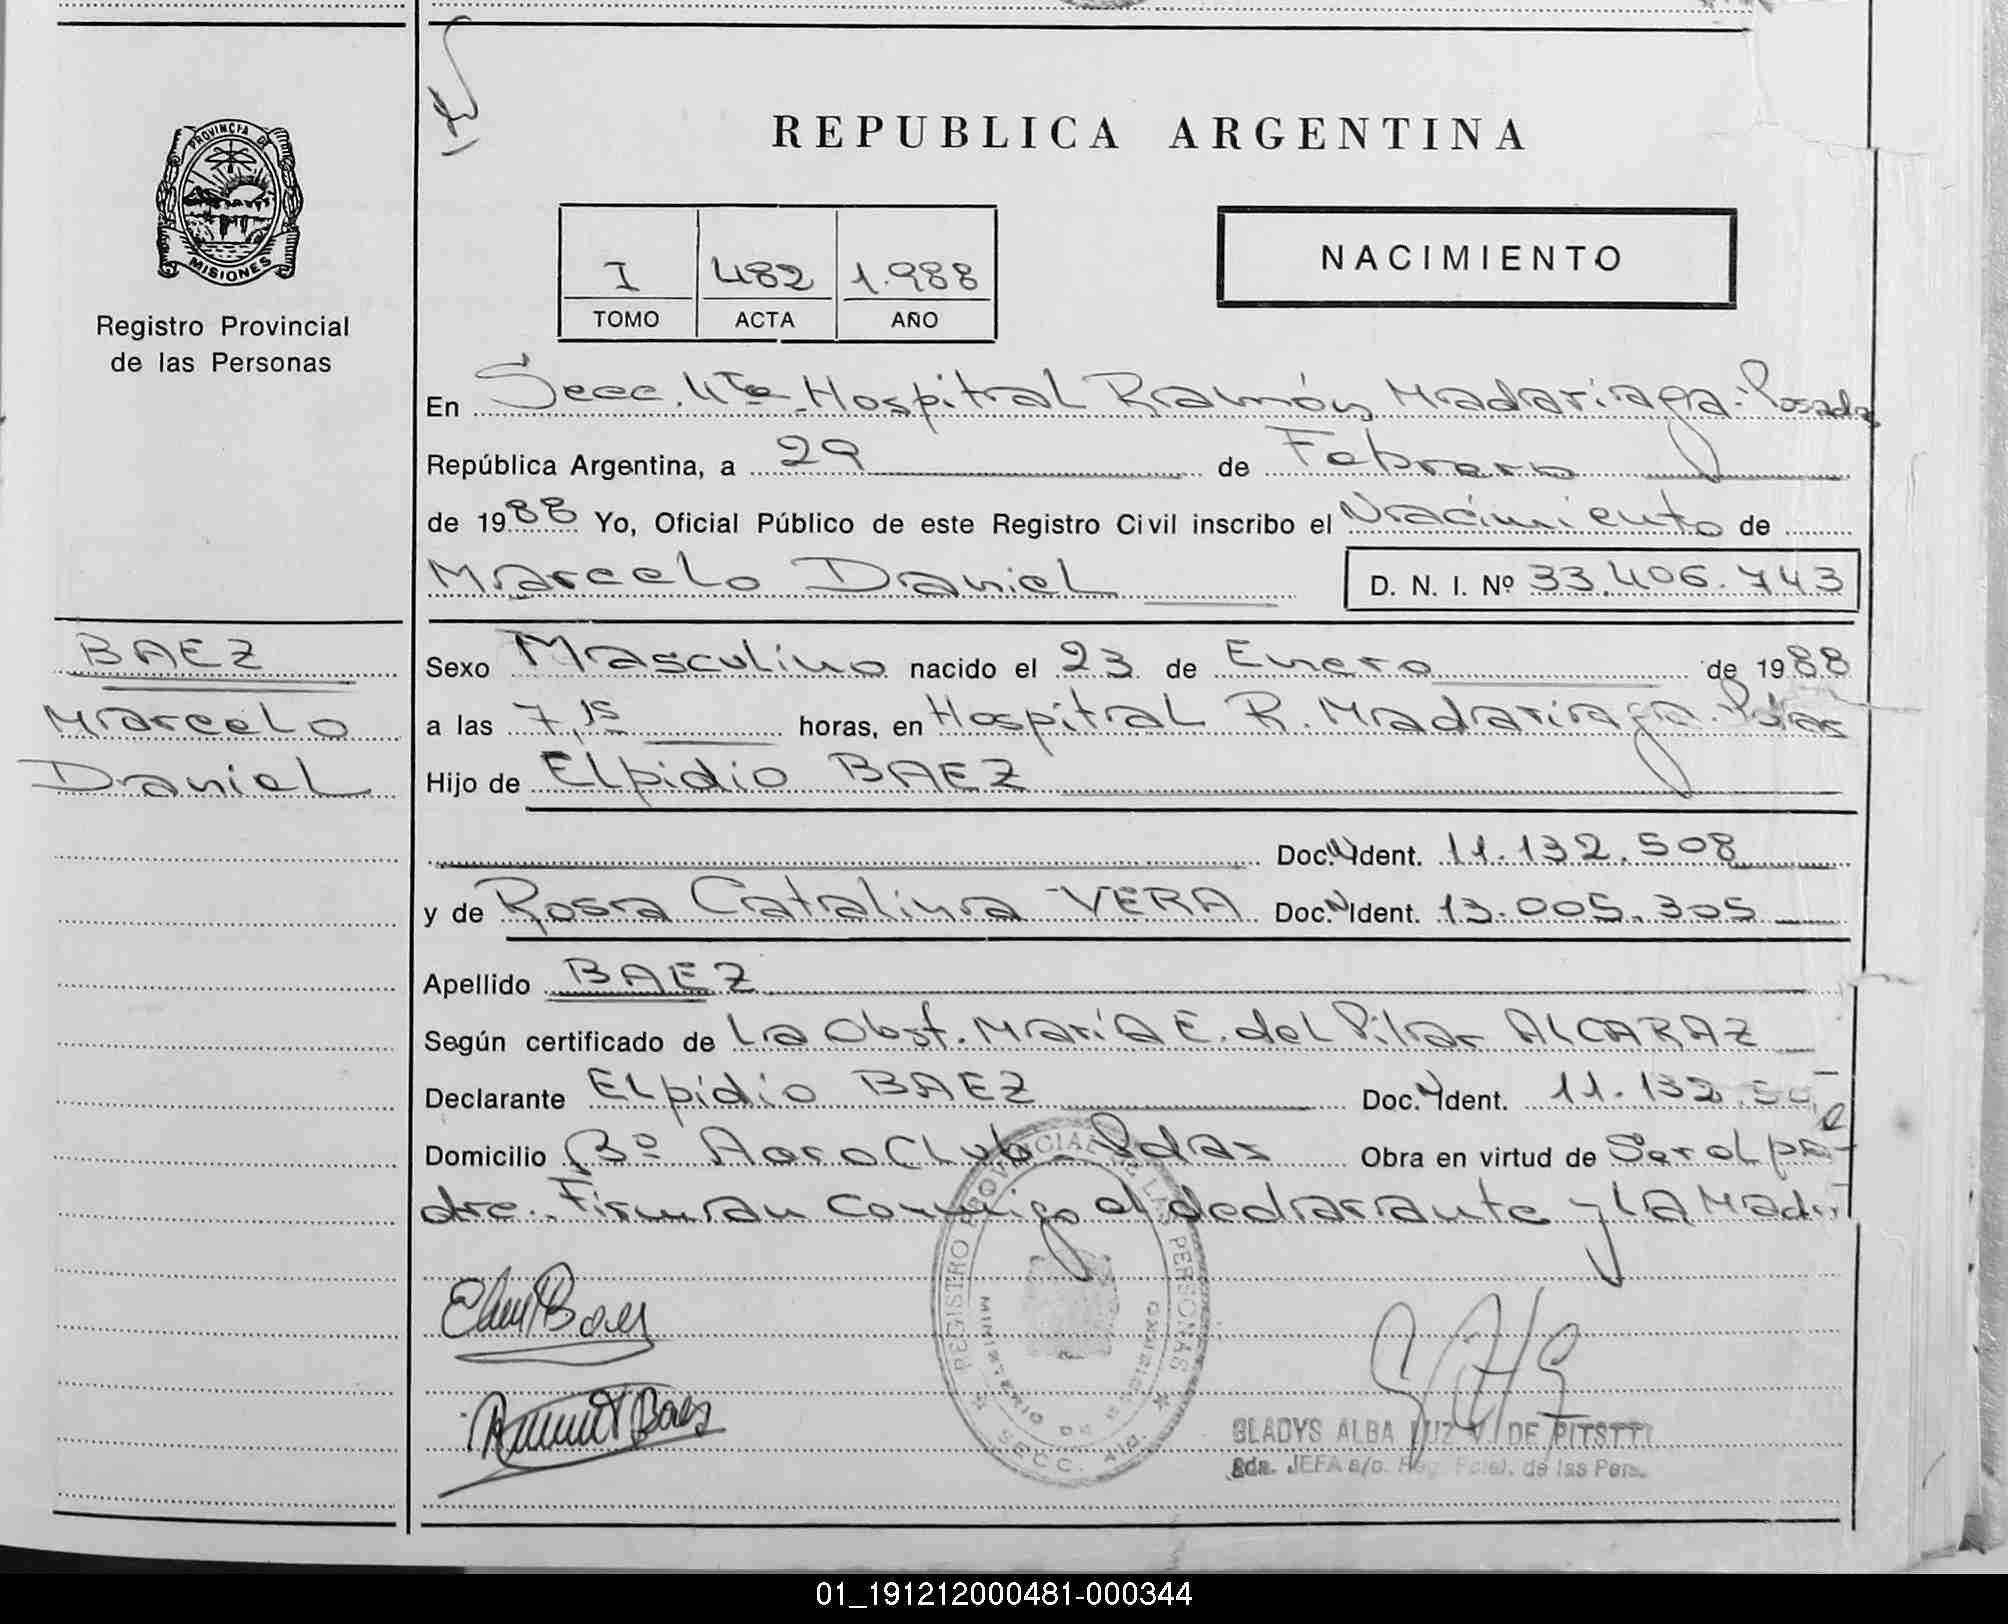 PROVINCIA DE
MISIONES
Registro Provincial
de las Personas
BAEZ
Marcelo
Daniel
REPUBLICA ARGENTINA
I 482 1.988
TOMO ACTA AÑO
NACIMIENTO
En Secc. 4ta Hospital Ramón Madariaga. Posadas
República Argentina, a 29 de Febrero
de 1988 Yo, Oficial Público de este Registro Civil inscribo el Nacimiento de
Marcelo Daniel D. N. I. Nº 33.406.743
Sexo Masculino nacido el 23 de Enero de 1988
a las 7,15 horas, en Hospital R. Madariaga. Pdas
Hijo de Elpidio BAEZ
Doc. Ident. 11.132.508
y de Rosa Catalina VERA Doc. Ident. 13.005.305
Apellido BAEZ
Según certificado de La Obst. María E. del Pilar ALCARAZ
Declarante Elpidio BAEZ Doc. Ident. 11.132.50
Domicilio Bº Aero Club Pdas Obra en virtud de Ser el pa-
dre. Firman conmigo el declarante y La Madre
REGISTRO PROVINCIAL DE LAS PERSONAS
MINISTERIO DE GOBIERNO
SECC. 4ta.
GLADYS ALBA LUZ V. DE
JEFA a/c. Reg. Pcial. de las Pers.
01_191212000481-000344